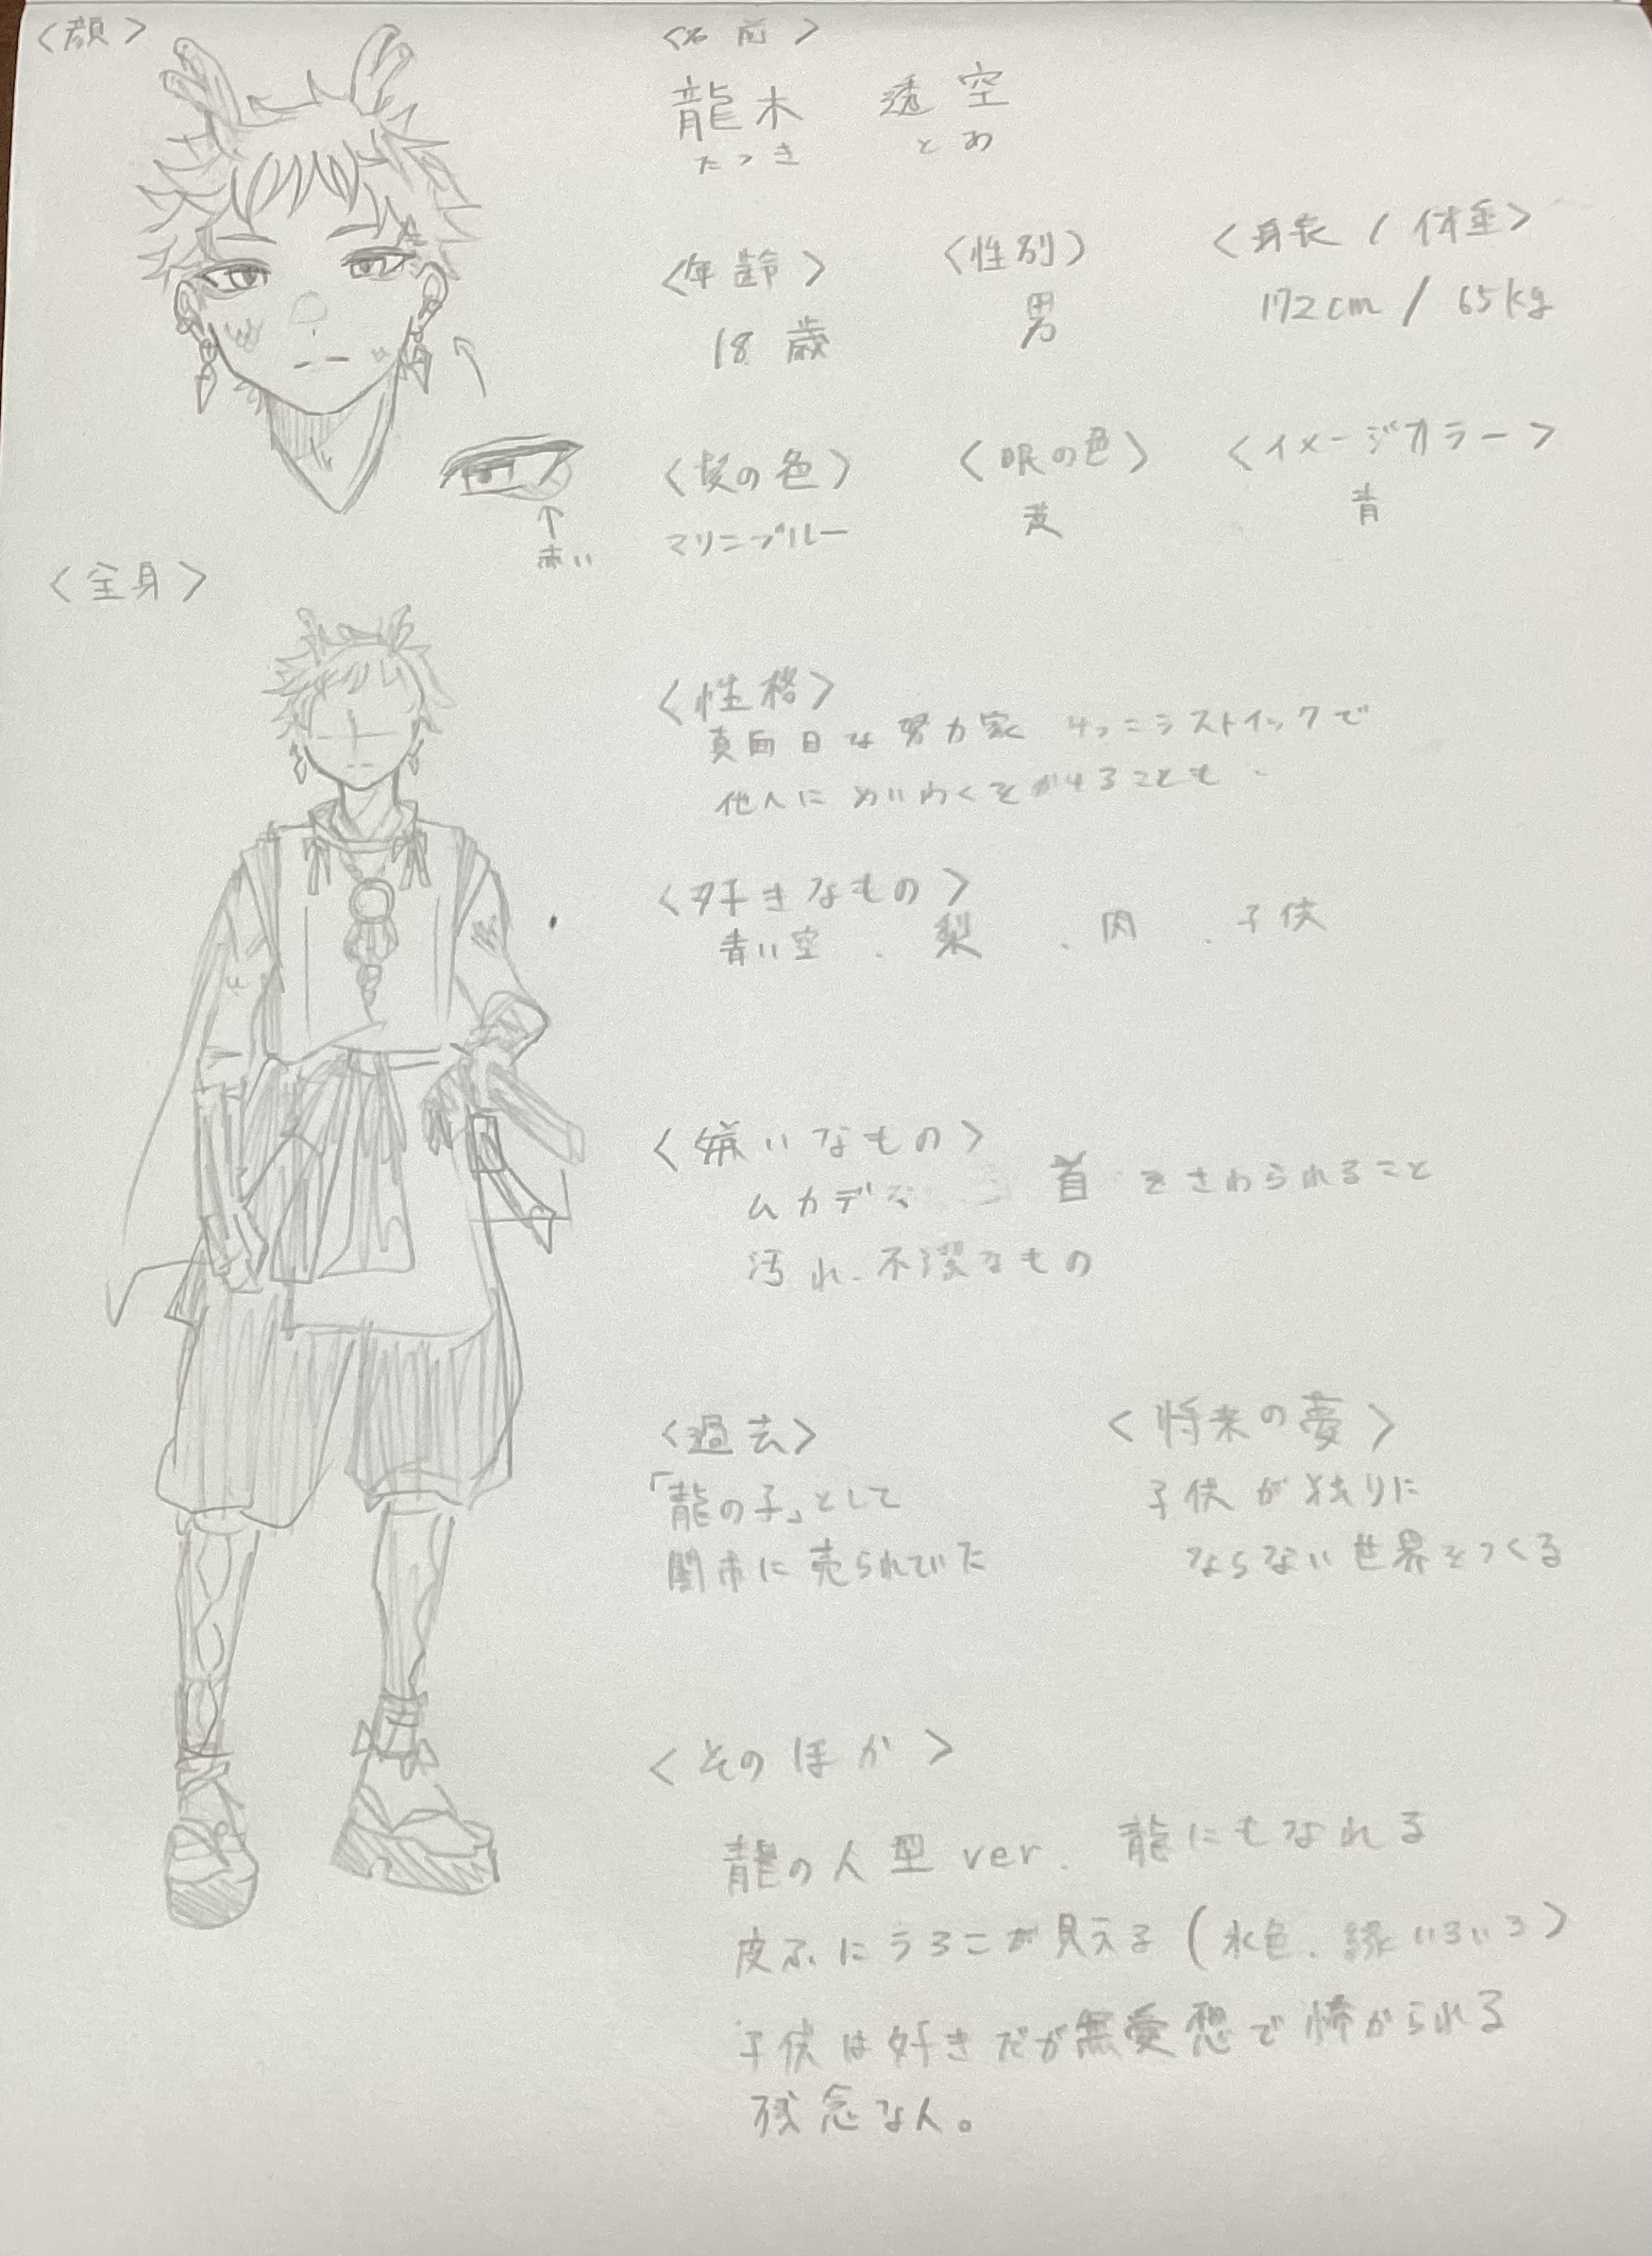 <顔>
<名前>
龍木 透空
たつき とあ
<年齢> <性別> <身長 / 体重>
18歳 男 172cm / 65kg
<髪の色> <眼の色> <イメージカラー>
マリンブルー 黄 青
↑
赤い
<全身>
<性格>
真面目な努力家 けっこうストイックで
他人にめいわくをかけることも
<好きなもの>
青い空、梨、肉、子供
<嫌いなもの>
ムカデ 首をさわられること
汚れ、不潔なもの
<過去>
「龍の子」として
闇市に売られていた
<将来の夢>
子供が独りに
ならない世界をつくる
<そのほか>
龍の人型ver. 龍にもなれる
皮ふにうろこが見える(水色、緑いろいろ)
子供は好きだが無愛想で怖がられる
残念な人。